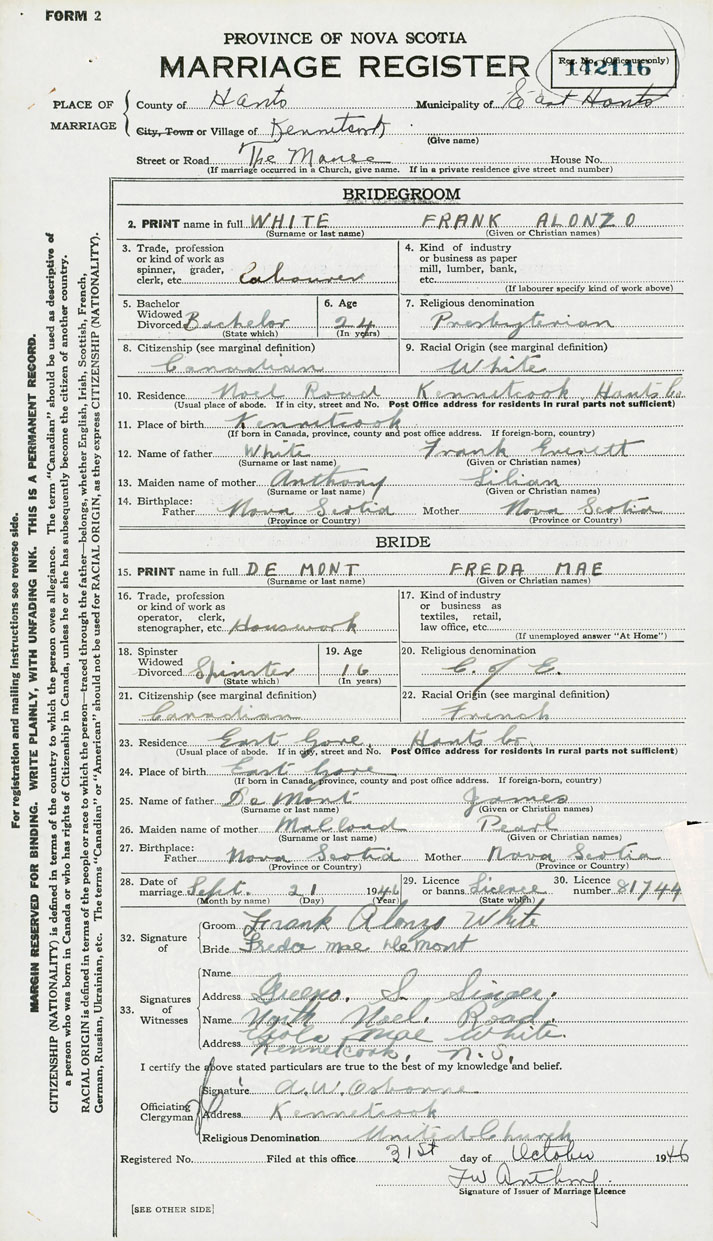 FORM 2
PROVINCE OF NOVA SCOTIA
MARRIAGE REGISTER
Reg. No. (Office use only)
142116
PLACE OF MARRIAGE
County of Hants Municipality of East Hants
City, Town or Village of Kennetcook
(Give name)
Street or Road The Manse House No.
(If marriage occurred in a Church, give name. If in a private residence give street and number)
BRIDEGROOM
2. PRINT name in full WHITE FRANK ALONZO
(Surname or last name) (Given or Christian names)
3. Trade, profession or kind of work as spinner, grader, clerk, etc. Labourer
4. Kind of industry or business as paper mill, lumber, bank, etc.
(If labourer specify kind of work above)
5. Bachelor Widowed Divorced Bachelor
(State which)
6. Age 24
(In years)
7. Religious denomination
Presbyterian
8. Citizenship (see marginal definition)
Canadian
9. Racial Origin (see marginal definition)
White
10. Residence Noel Road Kennetcook Hants Co.
(Usual place of abode. If in city, street and No. Post Office address for residents in rural parts not sufficient)
11. Place of birth Kennetcook
(If born in Canada, province, county and post office address. If foreign-born, country)
12. Name of father White Frank Everett
(Surname or last name) (Given or Christian names)
13. Maiden name of mother Anthony Lilian
(Surname or last name) (Given or Christian names)
14. Birthplace:
Father Nova Scotia Mother Nova Scotia
(Province or Country) (Province or Country)
BRIDE
15. PRINT name in full DE MONT FREDA MAE
(Surname or last name) (Given or Christian names)
16. Trade, profession or kind of work as operator, clerk, stenographer, etc. Housework
17. Kind of industry or business as textiles, retail, law office, etc.
(If unemployed answer "At Home")
18. Spinster Widowed Divorced Spinster
(State which)
19. Age 16
(In years)
20. Religious denomination
C. of E.
21. Citizenship (see marginal definition)
Canadian
22. Racial Origin (see marginal definition)
French
23. Residence East Gore, Hants Co.
(Usual place of abode. If in city, street and No. Post Office address for residents in rural parts not sufficient)
24. Place of birth East Gore
(If born in Canada, province, county and post office address. If foreign-born, country)
25. Name of father De Mont James
(Surname or last name) (Given or Christian names)
26. Maiden name of mother Pearl
(Surname or last name) (Given or Christian names)
27. Birthplace:
Father Nova Scotia Mother Nova Scotia
(Province or Country) (Province or Country)
28. Date of marriage Sept. 21 1946
(Month by name) (Day) (Year)
29. Licence or banns Licence
(State which)
30. Licence number 81744
32. Signature of
Groom Frank Alonzo White
Bride Freda Mae DeMont
33. Signatures of Witnesses
Name
Address S. Singer.
Name North Noel Road
Mae White
Address Kennetcook, N.S.
I certify the above stated particulars are true to the best of my knowledge and belief.
Officiating Clergyman
Signature A. W. Osborne
Address Kennetcook
Religious Denomination United Church
Registered No. Filed at this office 31st day of October 1946
F W Anthony
Signature of Issuer of Marriage Licence
[SEE OTHER SIDE]
For registration and mailing instructions see reverse side.
MARGIN RESERVED FOR BINDING. WRITE PLAINLY, WITH UNFADING INK. THIS IS A PERMANENT RECORD.
CITIZENSHIP (NATIONALITY) is defined in terms of the country to which the person owes allegiance. The term "Canadian" should be used as descriptive of
a person who was born in Canada or who has rights of Citizenship in Canada, unless he or she has subsequently become the citizen of another country.
RACIAL ORIGIN is defined in terms of the people or race to which the person—traced through the father—belongs, whether English, Irish, Scottish, French,
German, Russian, Ukrainian, etc. The terms "Canadian" or "American" should not be used for RACIAL ORIGIN, as they express CITIZENSHIP (NATIONALITY).